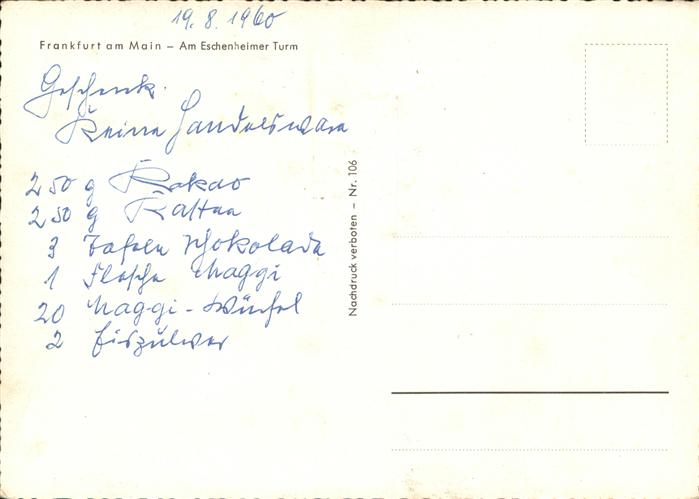 19. 8. 1960
Frankfurt am Main – Am Eschenheimer Turm
Geschenk.
Keine Handelsware
250 g Kakao
250 g Kaffee
3 Tafeln Schokolade
1 Flasche Maggi
20 Maggi-Würfel
2 Eispulver
Nachdruck verboten – Nr. 106